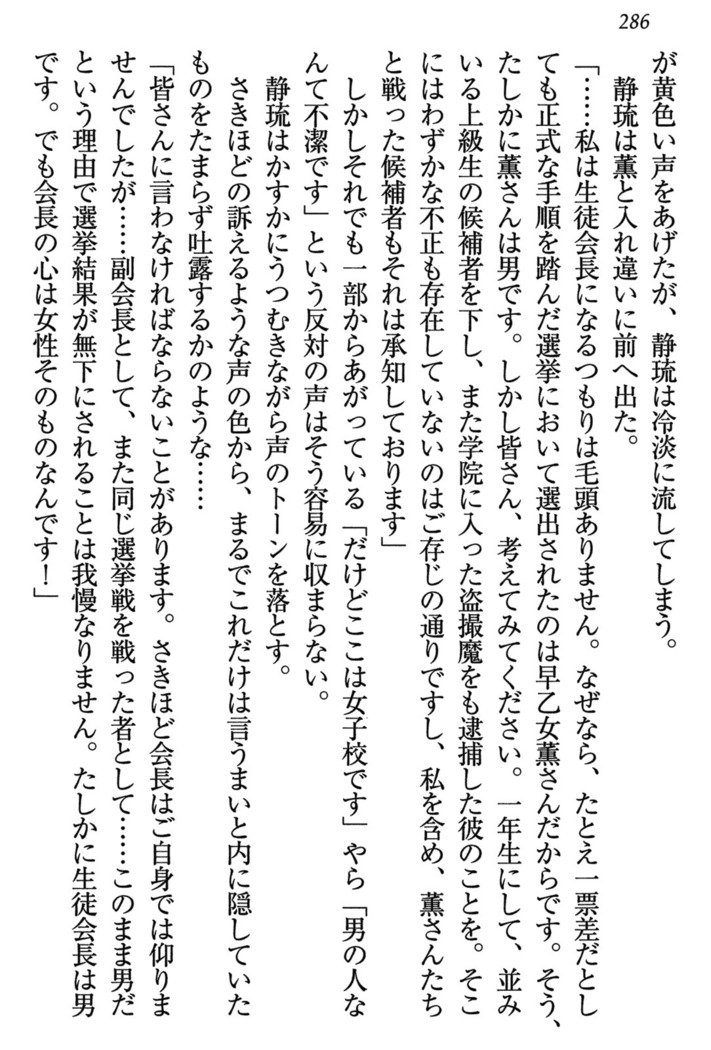 286
が黄色い声をあげたが、静琉は冷淡に流してしまう。
静琉は薫と入れ違いに前へ出た。
「……私は生徒会長になるつもりは毛頭ありません。なぜなら、たとえ一票差だとし
ても正式な手順を踏んだ選挙において選出されたのは早乙女薫さんだからです。そう、
たしかに薫さんは男です。しかし皆さん、考えてみてください。一年生にして、並み
いる上級生の候補者を下し、また学院に入った盗撮魔をも逮捕した彼のことを。そこ
にはわずかな不正も存在していないのはご存じの通りですし、私を含め、薫さんたち
と戦った候補者もそれは承知しております」
しかしそれでも一部からあがっている「だけどここは女子校です」やら「男の人な
んて不潔です」という反対の声はそう容易に収まらない。
静琉はかすかにうつむきながら声のトーンを落とす。
さきほどの訴えるような声の色から、まるでこれだけは言うまいと内に隠していた
ものをたまらず吐露するかのような……
「皆さんに言わなければならないことがあります。さきほど会長はご自身では仰りま
せんでしたが……副会長として、また同じ選挙戦を戦った者として……このまま男だ
という理由で選挙結果が無下にされることは我慢なりません。たしかに生徒会長は男
です。でも会長の心は女性そのものなんです！」